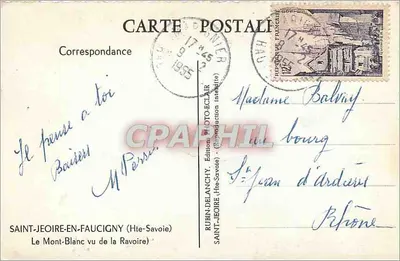 CARTE POSTALE
Correspondance
17 H 45
9
1955
17 H 45
RÉPUBLIQUE FRANÇAISE
12F
Je pense a toi
Baisers
Madame
au bourg
St Jean d'Ardières
Rhône
CPARHIL
RUBIN-DELANCHY, Edition PHOTO-ECLAIR
SAINT-JEOIRE (Hte-Savoie) - (Reproduction interdite)
SAINT-JEOIRE-EN-FAUCIGNY (Hte-Savoie)
Le Mont-Blanc vu de la Ravoire)